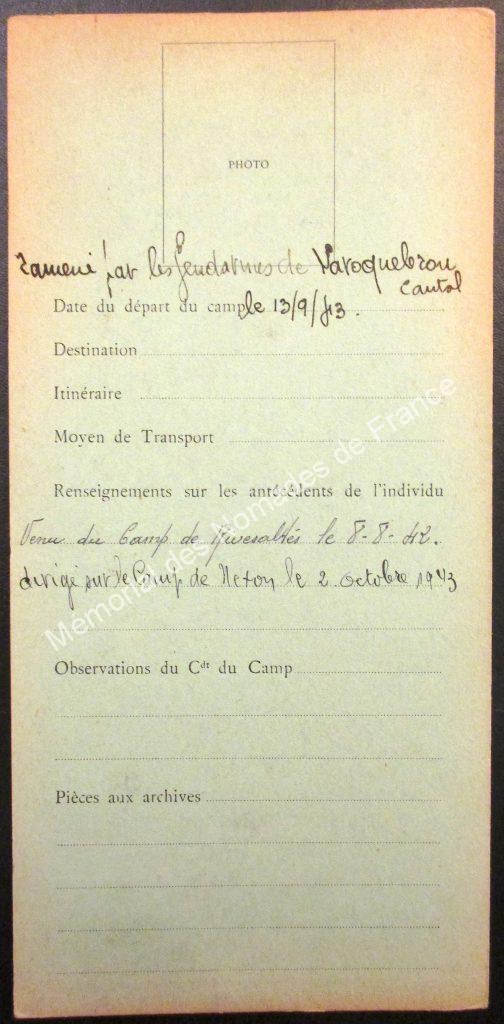 PHOTO
ramené par les gendarmes de Laroquebrou
Cantal
Date du départ du camp le 13/9/43.
Destination
Itinéraire
Moyen de Transport
Renseignements sur les antécédents de l'individu
Venu du Camp de Rivesaltes le 8-8-42.
dirigé sur le Camp de Nexon le 2 octobre 1943
Observations du Cdt du Camp
Pièces aux archives
Memorial des Nomades de France